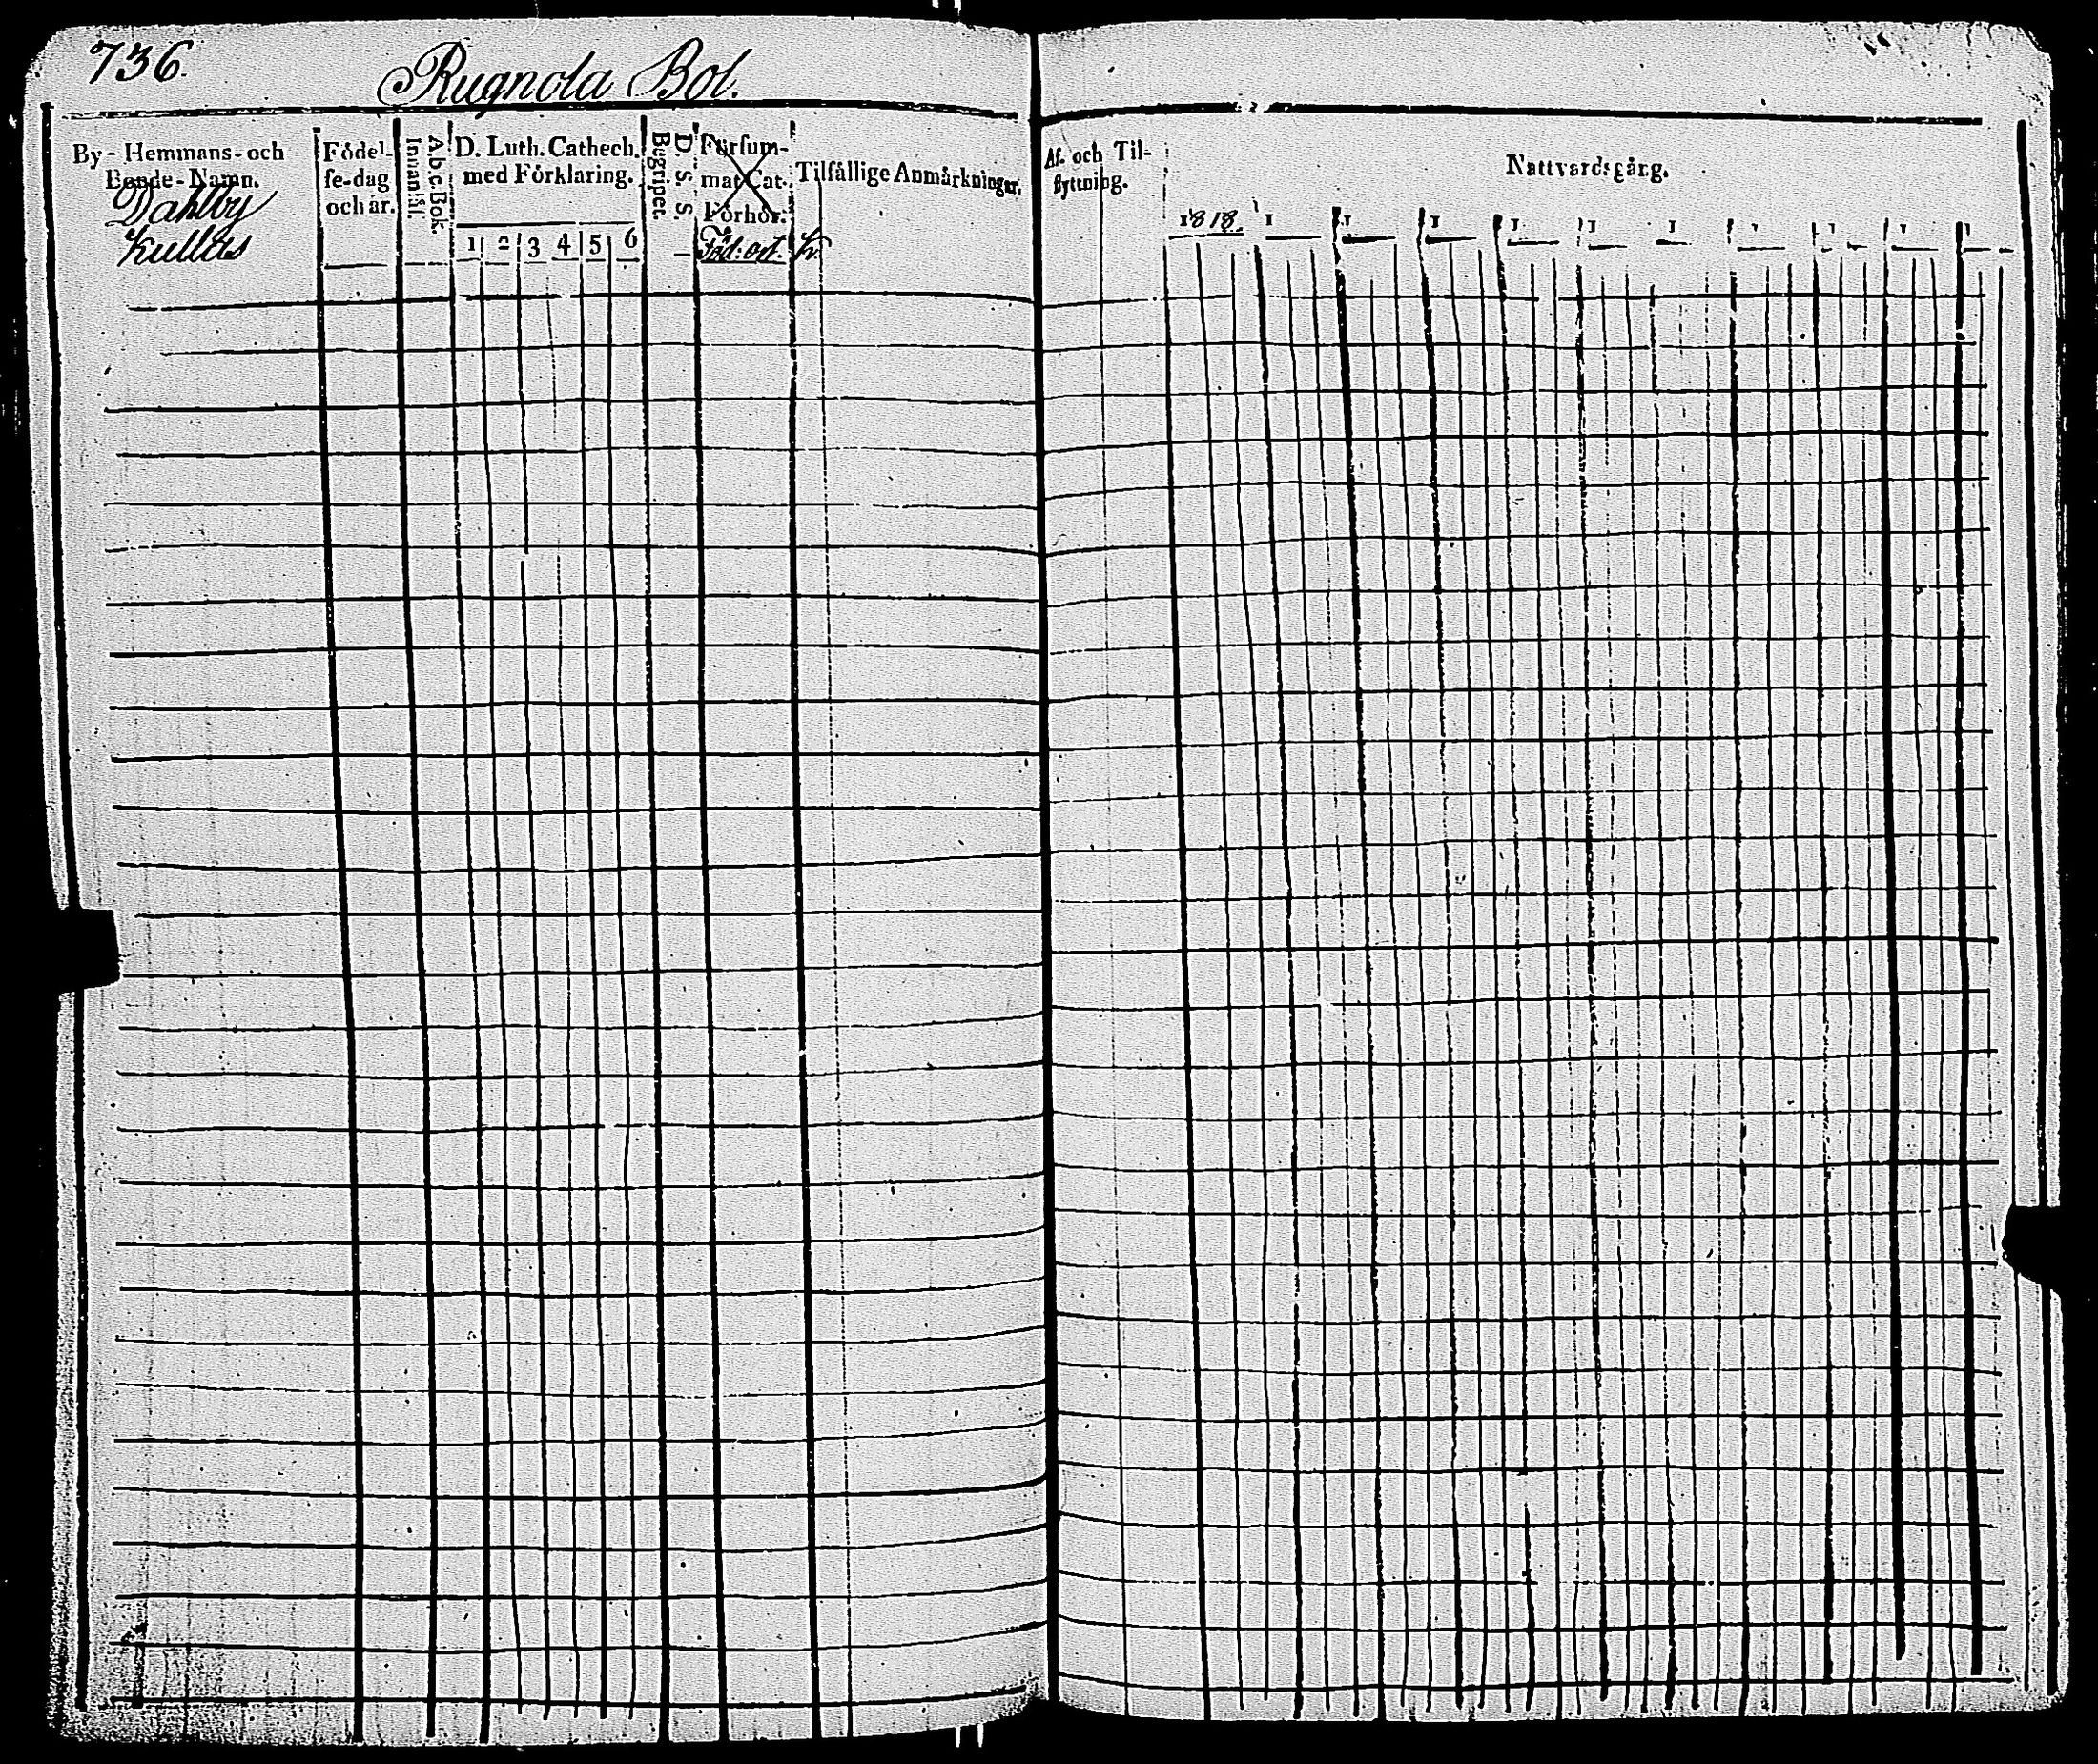 736.
Rugnola Bol.
By- Hemmans- och
Bonde-Namn.
Dahlby
Kullas
Födel-
se-dag
och år.
A.b.c.Bok.
Innantil.
D. Luth. Cathech.
med Förklaring.
1 2 3 4 5 6
D. S. S.
Begripet.
Försum-
mat Cat.
Förhör.
Föd: ort.
Tilfällige Anmärkningar.
Af- och Til-
flyttning.
Nattvardsgång.
1818. 1 1 1 1 1 1 1 1 1 1